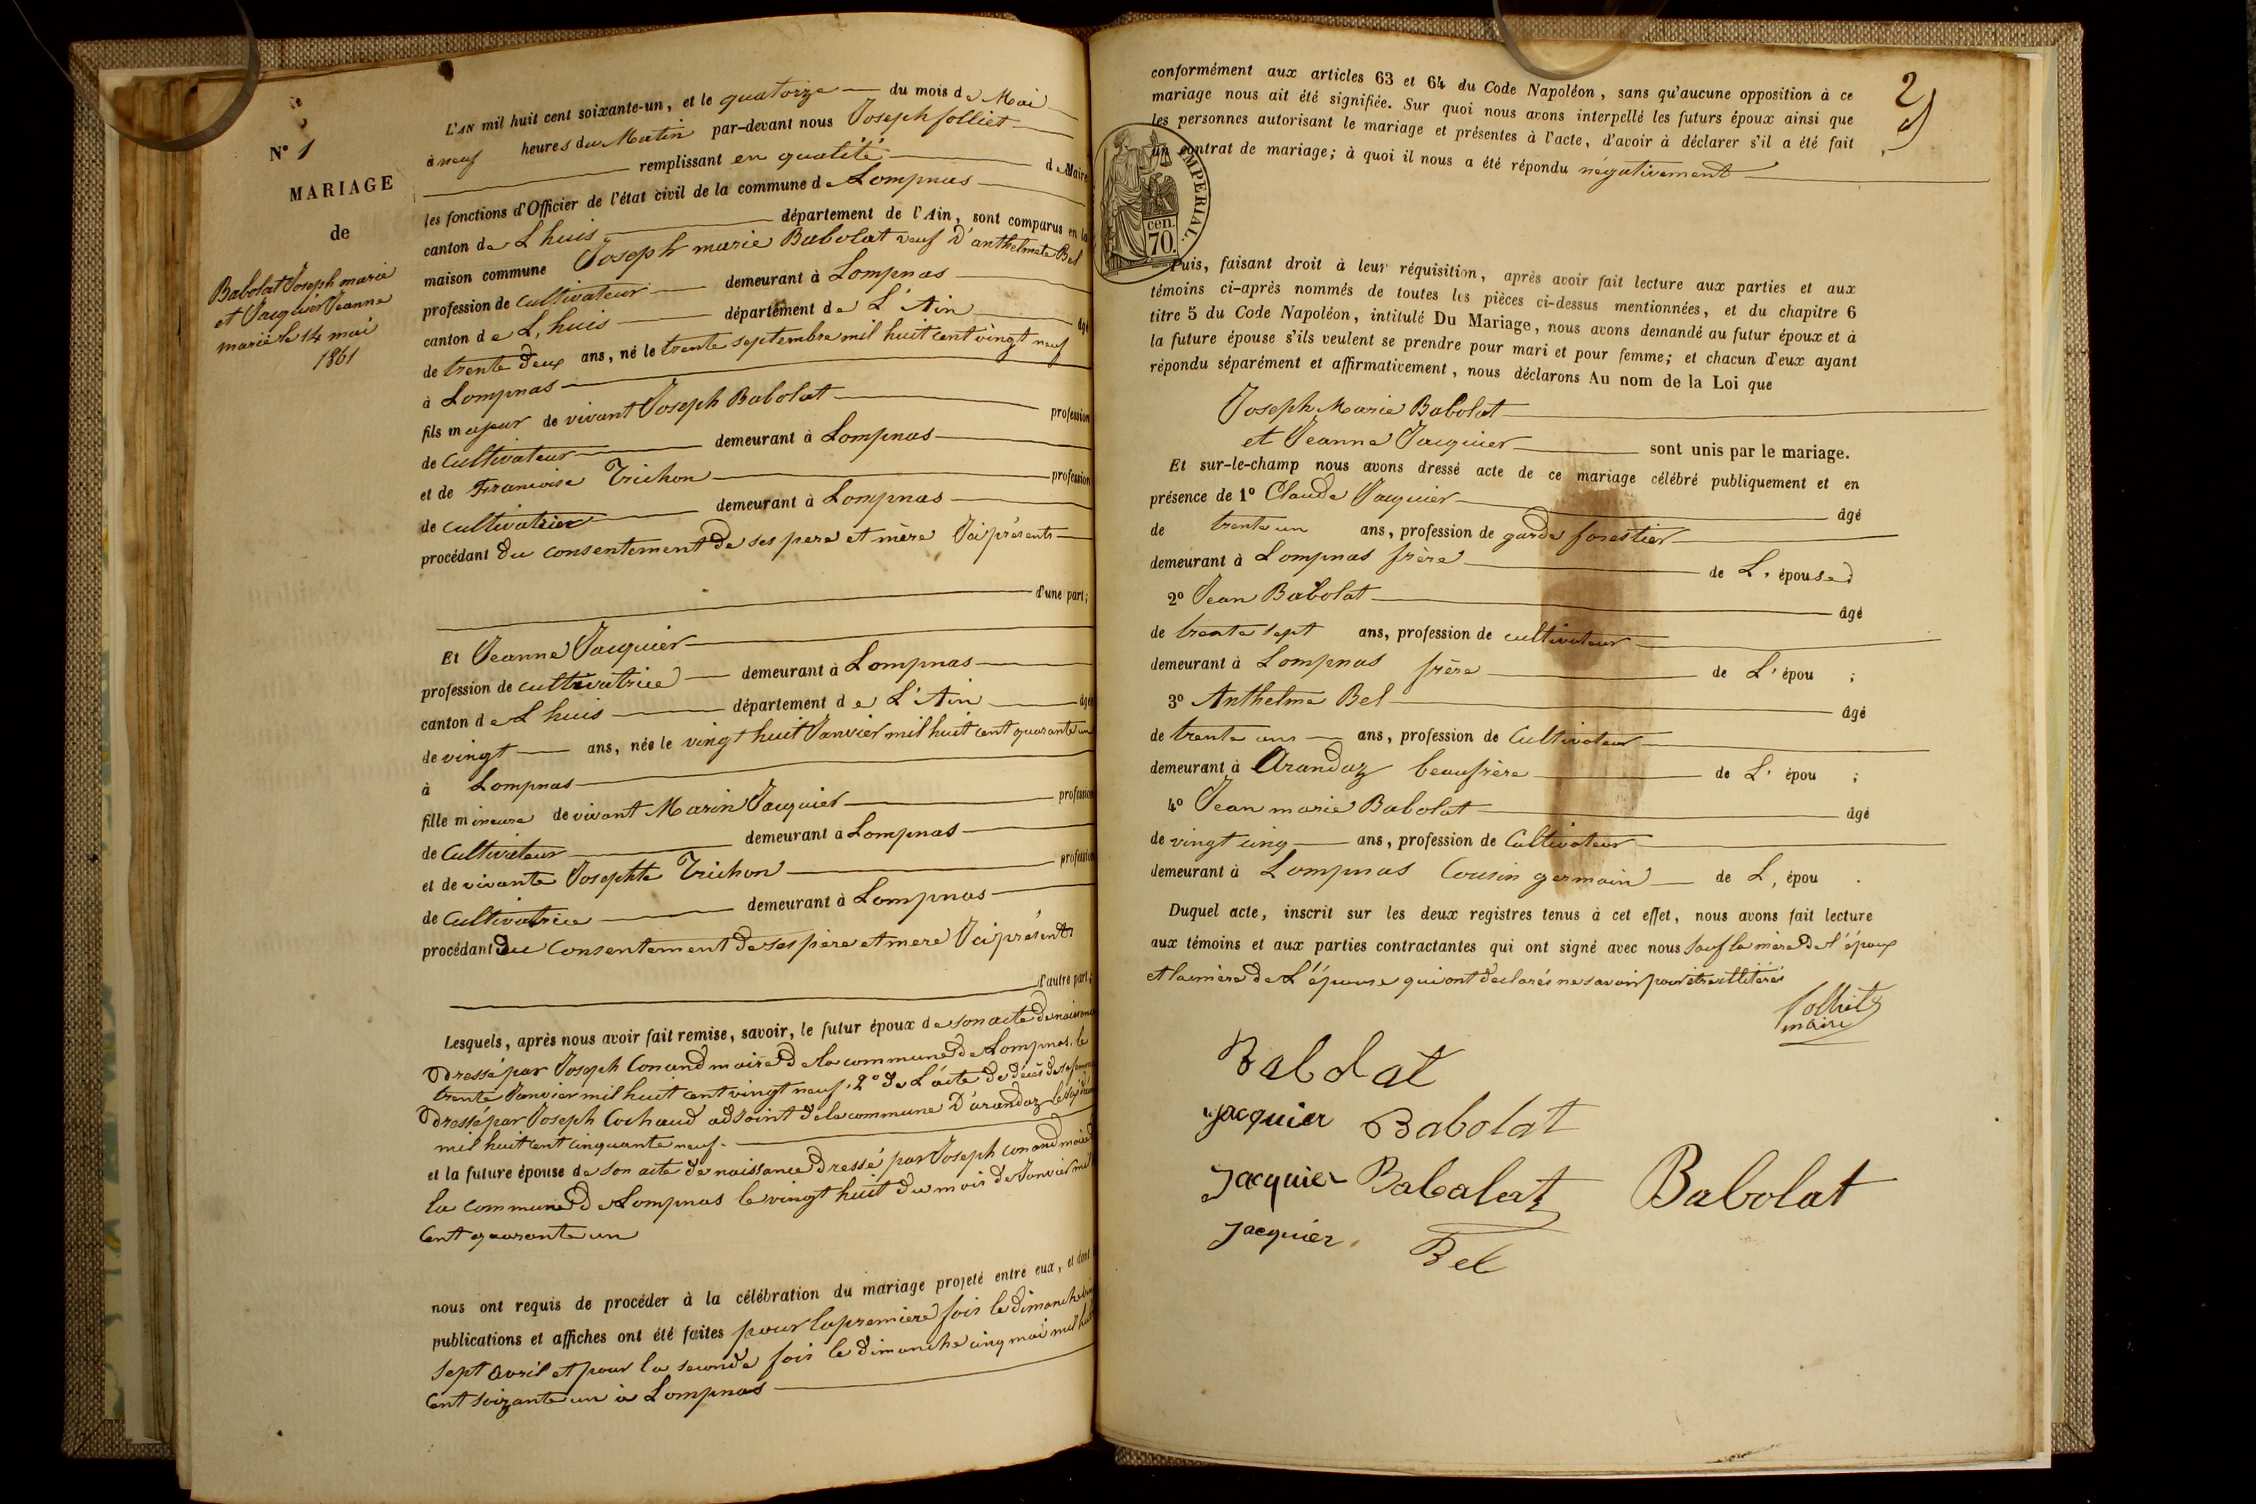 N° 1
MARIAGE
de
Babolat Joseph marie
et Jacquier Jeanne
marié le 14 mai
1861
L'AN mil huit cent soixante-un, et le quatorze du mois de Mai
à neuf heures du Matin par-devant nous Joseph folliet
remplissant en qualité de Maire
les fonctions d'Officier de l'état civil de la commune de Lompnas
canton de L huis département de l'Ain, sont comparus en la
maison commune Joseph marie Babolat veuf d'anthelmete Bel
profession de cultivateur demeurant à Lompnas
canton de L, huis département de L'Ain âgé
de trente deux ans, né le trente septembre mil huit cent vingt neuf
à Lompnas
fils majeur de vivant Joseph Babolat profession
de cultivateur demeurant à Lompnas
et de Francoise Trichon profession
de cultivatrice demeurant à Lompnas
procédant du consentement de ses pere et mère Ici présents
d'une part;
Et Jeanne Jacquier
profession de cultivatrice demeurant à Lompnas
canton de L huis département de L'Ain âgé
de vingt ans, née le vingt huit Janvier mil huit cent quarante un
à Lompnas
fille mineure de vivant Marin Jacquier profession
de Cultivateur demeurant à Lompnas
et de vivante Josephte Trichon profession
de Cultivatrice demeurant à Lompnas
procédant du consentement de ses père et mere Ici présents
d'autre part;
Lesquels, après nous avoir fait remise, savoir, le futur époux de son acte de naissance
Dressé par Joseph Conand maire de la commune de Lompnas, le
trente Janvier mil huit cent vingt neuf, 2° de L'acte de décès de sa femme
Dressé par Joseph Cochaud adjoint de la commune D'arandaz Le
mil huit cent cinquante neuf.
et la future épouse de son acte de naissance dressé par Joseph conand maire
la commune de Lompnas le vingt huit du mois de Janvier mil
Cent quarante un
nous ont requis de procéder à la célébration du mariage projeté entre eux, et dont
publications et affiches ont été faites pour la premiere fois le dimanche
sept avril et pour la seconde fois le dimanche cinq mai mil huit
Cent soixante un à Lompnas
2
conformément aux articles 63 et 64 du Code Napoléon, sans qu'aucune opposition à ce
mariage nous ait été signifiée. Sur quoi nous avons interpellé les futurs époux ainsi que
les personnes autorisant le mariage et présentes à l'acte, d'avoir à déclarer s'il a été fait
un contrat de mariage; à quoi il nous a été répondu négativement
IMPERIAL.
cen.
70.
Puis, faisant droit à leur réquisition, après avoir fait lecture aux parties et aux
témoins ci-après nommés de toutes les pièces ci-dessus mentionnées, et du chapitre 6
titre 5 du Code Napoléon, intitulé Du Mariage, nous avons demandé au futur époux et à
la future épouse s'ils veulent se prendre pour mari et pour femme; et chacun d'eux ayant
répondu séparément et affirmativement, nous déclarons Au nom de la Loi que
Joseph Marie Babolat
et Jeanne Jacquier sont unis par le mariage.
Et sur-le-champ nous avons dressé acte de ce mariage célébré publiquement et en
présence de 1° Claude Jacquier âgé
de trente un ans, profession de garde forestier
demeurant à Lompnas frère de L'épouse;
2° Jean Babolat âgé
de trente sept ans, profession de cultivateur
demeurant à Lompnas frère de L'épou ;
3° Anthelme Bel âgé
de trente ans ans, profession de Cultivateur
demeurant à Arandaz beaufrère de L'épou ;
4° Jean marie Babolat âgé
de vingt cinq ans, profession de Cultivateur
demeurant à Lompnas Cousin germain de L, épou .
Duquel acte, inscrit sur les deux registres tenus à cet effet, nous avons fait lecture
aux témoins et aux parties contractantes qui ont signé avec nous sauf la mère de l'époux
et la mère de L'épouse qui ont déclarés ne savoir pour être illitérés
folliet
maire
Babolat
jacquier Babolat
jacquier Babalat Babolat
jacquier Bel